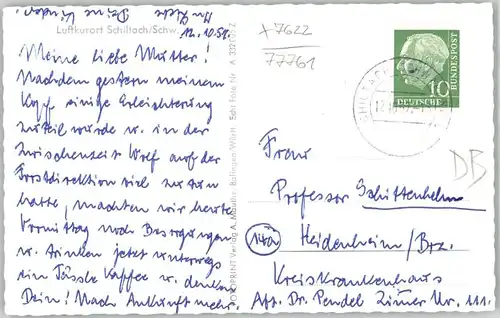 Luftkurort Schiltach/Schw.
In Liebe
Deine Kinder.
12.10.57.
Meine liebe Mutter!
Nachdem gestern meinem
Kopf einige Erleichterung
zuteil wurde u. in der
Zwischenzeit Wolf auf der
Forstdirektion sich zu tun
hatte, machten wir heute
Vormittag noch Besorgungen
u. trinken jetzt unterwegs
ein Tässle Kaffee u. denken
Dein! Nach Ankunft mehr.
FOTOPRINT Verlag A. Balingen/Württ. Echt Foto Nr. A
x 7622
77761
10
DEUTSCHE
BUNDESPOST
SCHILTACH
DB
Frau
Professor Schittenhelm
14a Heidenheim/Brz.
Kreiskrankenhaus
Abt. Dr. Pendel Zimer Nr. 111.